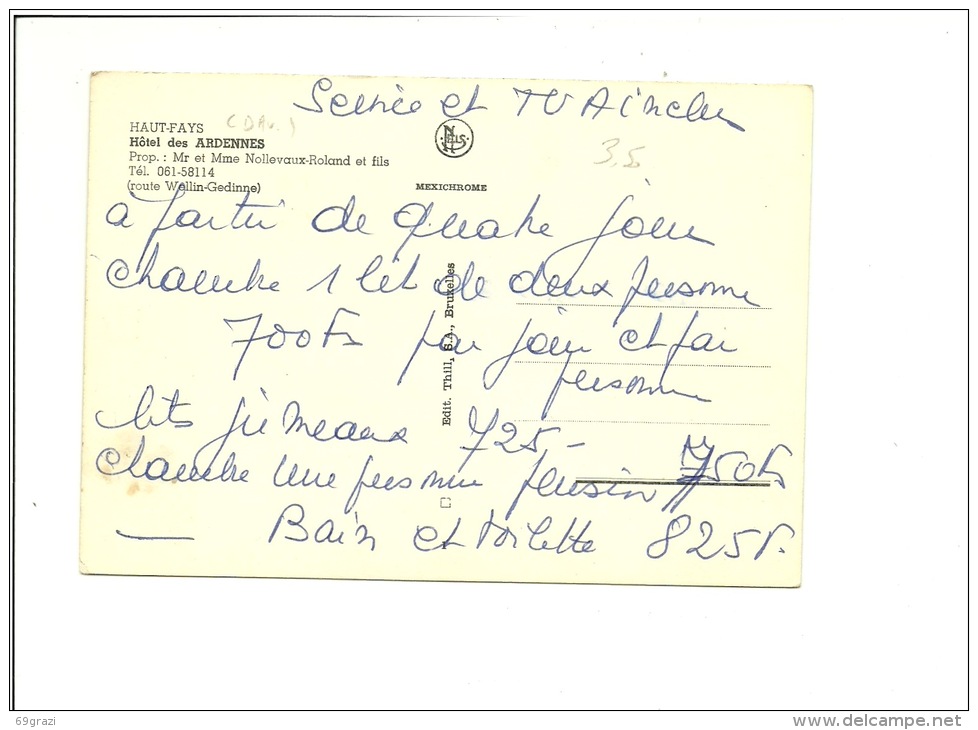 Service et TVA inclu
HAUT-FAYS
Hôtel des ARDENNES
Prop. : Mr et Mme Nollevaux-Roland et fils
Tél. 061-58114
(route Wellin-Gedinne)
NELS
MEXICHROME
3,5
à partir de quatre jour
chambre 1 lit de deux personne
700Frs par jour et par
personne
lits jumeaux 725-
chambre une personne pension 750Frs
Bain et toilette 825F.
Edit. Thill, S.A., Bruxelles
69grazi
delcampe.net